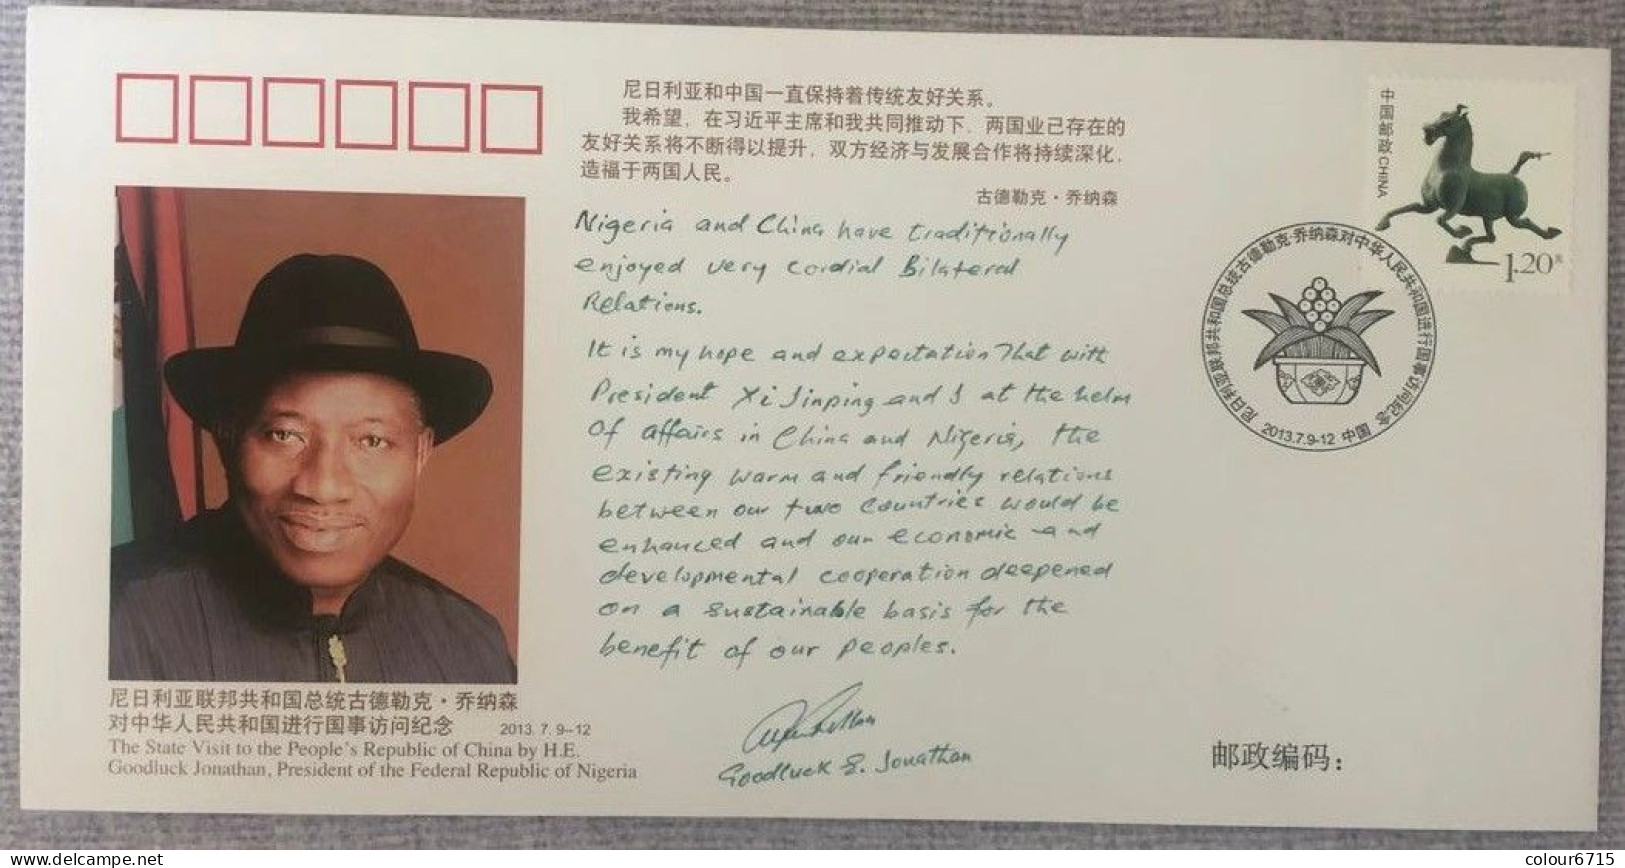 尼日利亚和中国一直保持着传统友好关系。
我希望，在习近平主席和我共同推动下，两国业已存在的
友好关系将不断得以提升，双方经济与发展合作将持续深化，
造福于两国人民。
古德勒克·乔纳森
Nigeria and China have traditionally
enjoyed very cordial Bilateral
Relations.
It is my hope and expectation that with
President Xi Jinping and I at the helm
of affairs in China and Nigeria, the
existing warm and friendly relations
between our two countries would be
enhanced and our economic and
developmental cooperation deepened
on a sustainable basis for the
benefit of our peoples.
Goodluck E. Jonathan
尼日利亚联邦共和国总统古德勒克·乔纳森
对中华人民共和国进行国事访问纪念 2013.7.9-12
The State Visit to the People's Republic of China by H.E.
Goodluck Jonathan, President of the Federal Republic of Nigeria
中国邮政 CHINA
1.20元
尼日利亚联邦共和国总统古德勒克·乔纳森对中华人民共和国进行国事访问纪念
2013.7.9-12 中国
邮政编码：
www.delcampe.net
colour6715